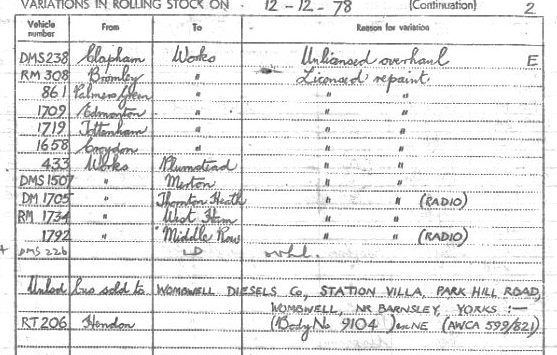 VARIATIONS IN ROLLING STOCK ON 12-12-78 (Continuation) 2
Vehicle number From To Reason for variation
DMS 238 Clapham Works Unlicensed overhaul E
RM 308 Bromley " Licensed repaint
861 Palmers Green " " "
1709 Edmonton " " "
1719 Tottenham " " "
1658 Croydon " " "
433 Works Plumstead " "
DMS 1507 " Merton " "
DM 1705 " Thornton Heath " " (RADIO)
RM 1734 " West Ham " "
1792 " Middle Row " " (RADIO)
+ DMS 226 LD
Unlcd bus sold to WOMBWELL DIESELS Co, STATION VILLA, PARK HILL ROAD,
WOMBWELL, NR BARNSLEY, YORKS :—
RT 206 Hendon (Body No 9104) (AWCA 599/821)